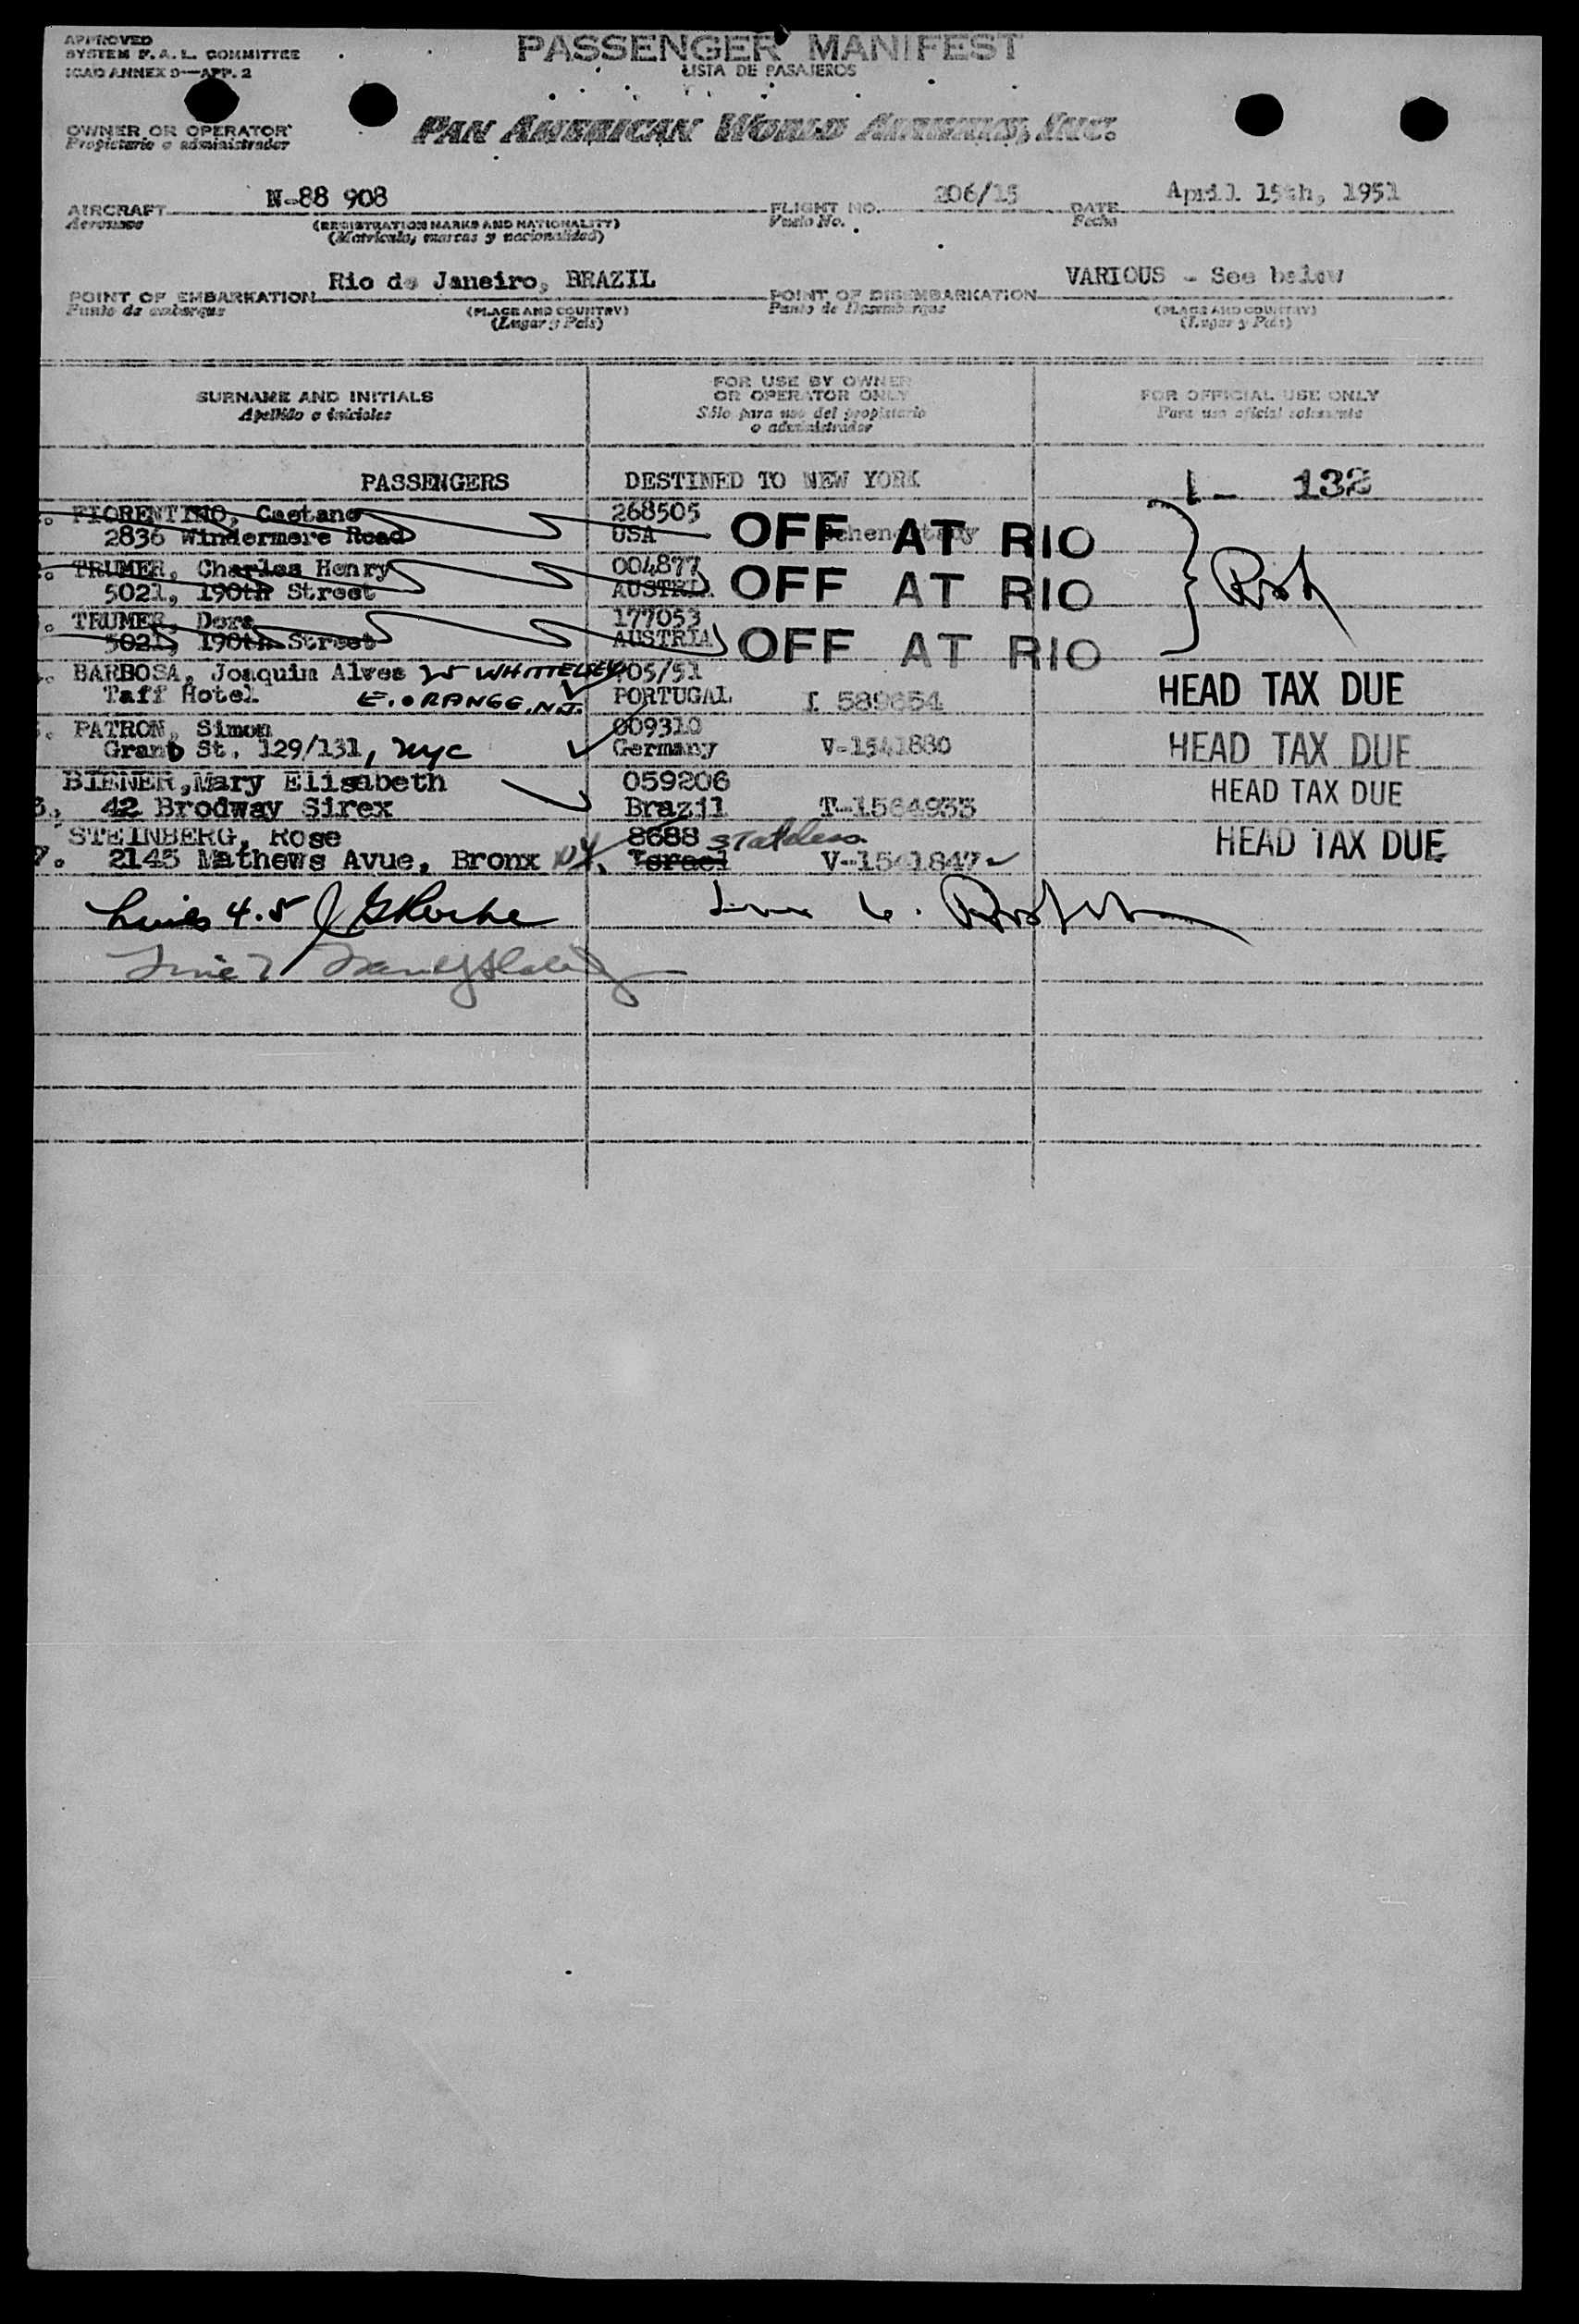 APPROVED
SYSTEM F.A.L. COMMITTEE
ICAO ANNEX 9—APP. 2
PASSENGER MANIFEST
LISTA DE PASAJEROS
OWNER OR OPERATOR
Propietario o administrador
PAN AMERICAN WORLD AIRWAYS, INC.
AIRCRAFT N-88 908 FLIGHT NO. 206/15 DATE April 15th, 1951
Aeronave (REGISTRATION MARKS AND NATIONALITY) Vuelo No. Fecha
(Matrícula, marcas y nacionalidad)
POINT OF EMBARKATION Rio de Janeiro, BRAZIL POINT OF DISEMBARKATION VARIOUS - See below
Punto de embarque (PLACE AND COUNTRY) Punto de Desembarque (PLACE AND COUNTRY)
(Lugar y País) (Lugar y País)
SURNAME AND INITIALS FOR USE BY OWNER OR OPERATOR ONLY FOR OFFICIAL USE ONLY
Apellido e iniciales Sólo para uso del propietario o administrador Para uso oficial solamente
PASSENGERS DESTINED TO NEW YORK 1 - 132
FIORENTINO, Gaetano 268505
2836 Windermere Road USA Schenectady OFF AT RIO
TRUMER, Charles Henry 004877
5021, 190th Street AUSTRIA OFF AT RIO
TRUMER, Dora 177053
5021, 190th Street AUSTRIA OFF AT RIO
BARBOSA, Joaquim Alves WHITTELSEY 05/51
Taff Hotel E. ORANGE, N.J. PORTUGAL I 589654 HEAD TAX DUE
PATRON, Simon 009310
Grand St. 129/131, NYC Germany V-1541880 HEAD TAX DUE
BIENER, Mary Elisabeth 059206 HEAD TAX DUE
42 Brodway Sirex Brazil T-1564933
STEINBERG, Rose 8688 stateless HEAD TAX DUE
7. 2145 Mathews Avue, Bronx NY. Israel V-1541847
Lines 4.5
Line 6.
Line 7